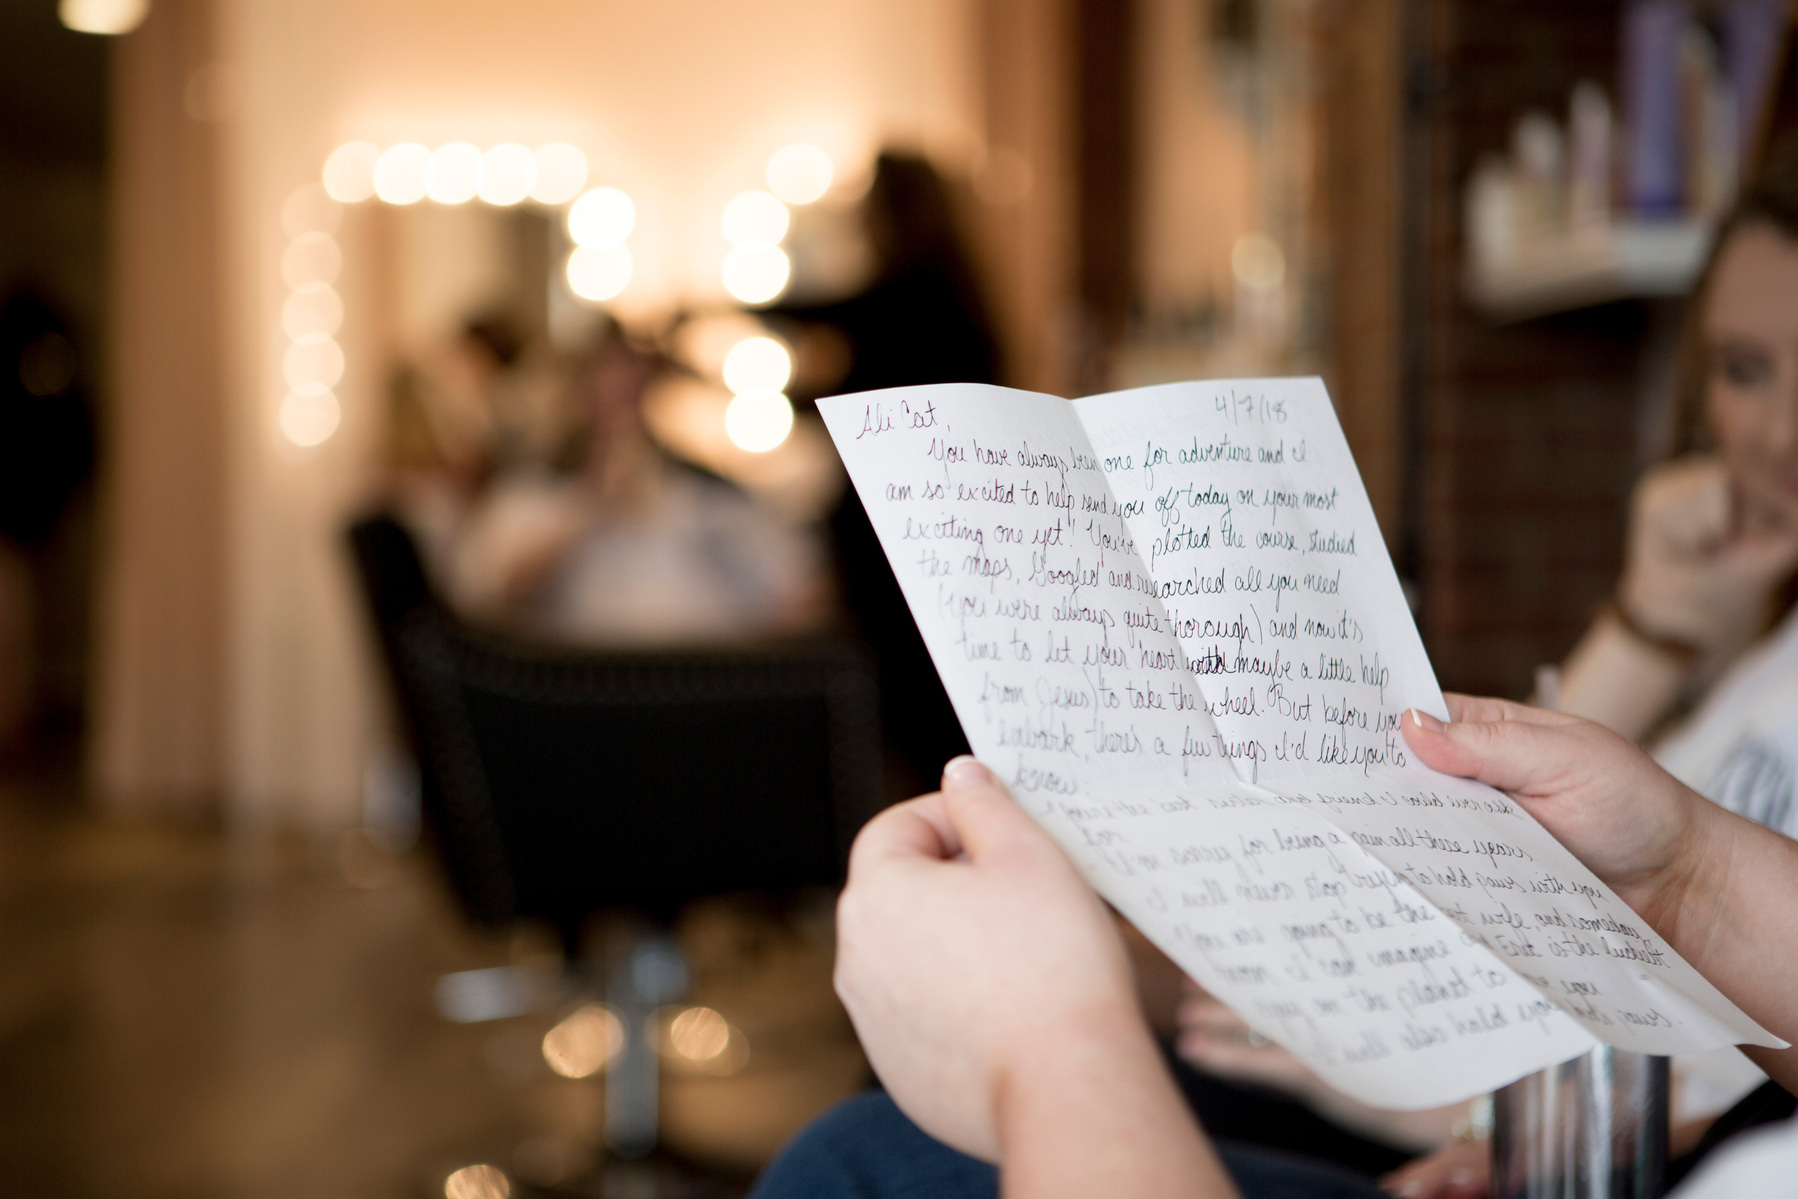 Ali Cat,
4/7/18
You have always been one for adventure and I
am so excited to help send you off today on your most
exciting one yet! You've plotted the course, studied
the maps, Googled and researched all you need
(you were always quite thorough) and now it's
time to let your heart with maybe a little help
from Jesus) to take the wheel. But before you
embark, there's a few things I'd like you to
know:
for
- I'm sorry for being a pain all these years
I will never stop trying to hold paws with you
You are going to be the best wife, and somebody
mom I can imagine is the luckiest
guy on the planet to you
I will also hold your paws.